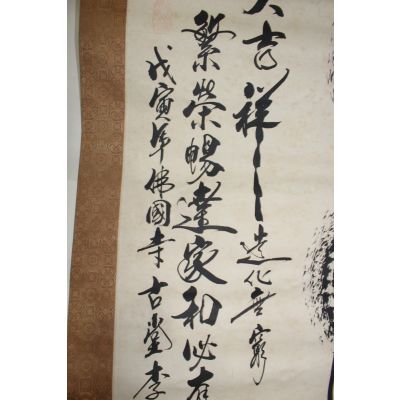 大吉祥〻造化无窮
繁榮暢達家和必有
戊寅年佛國寺古堂李